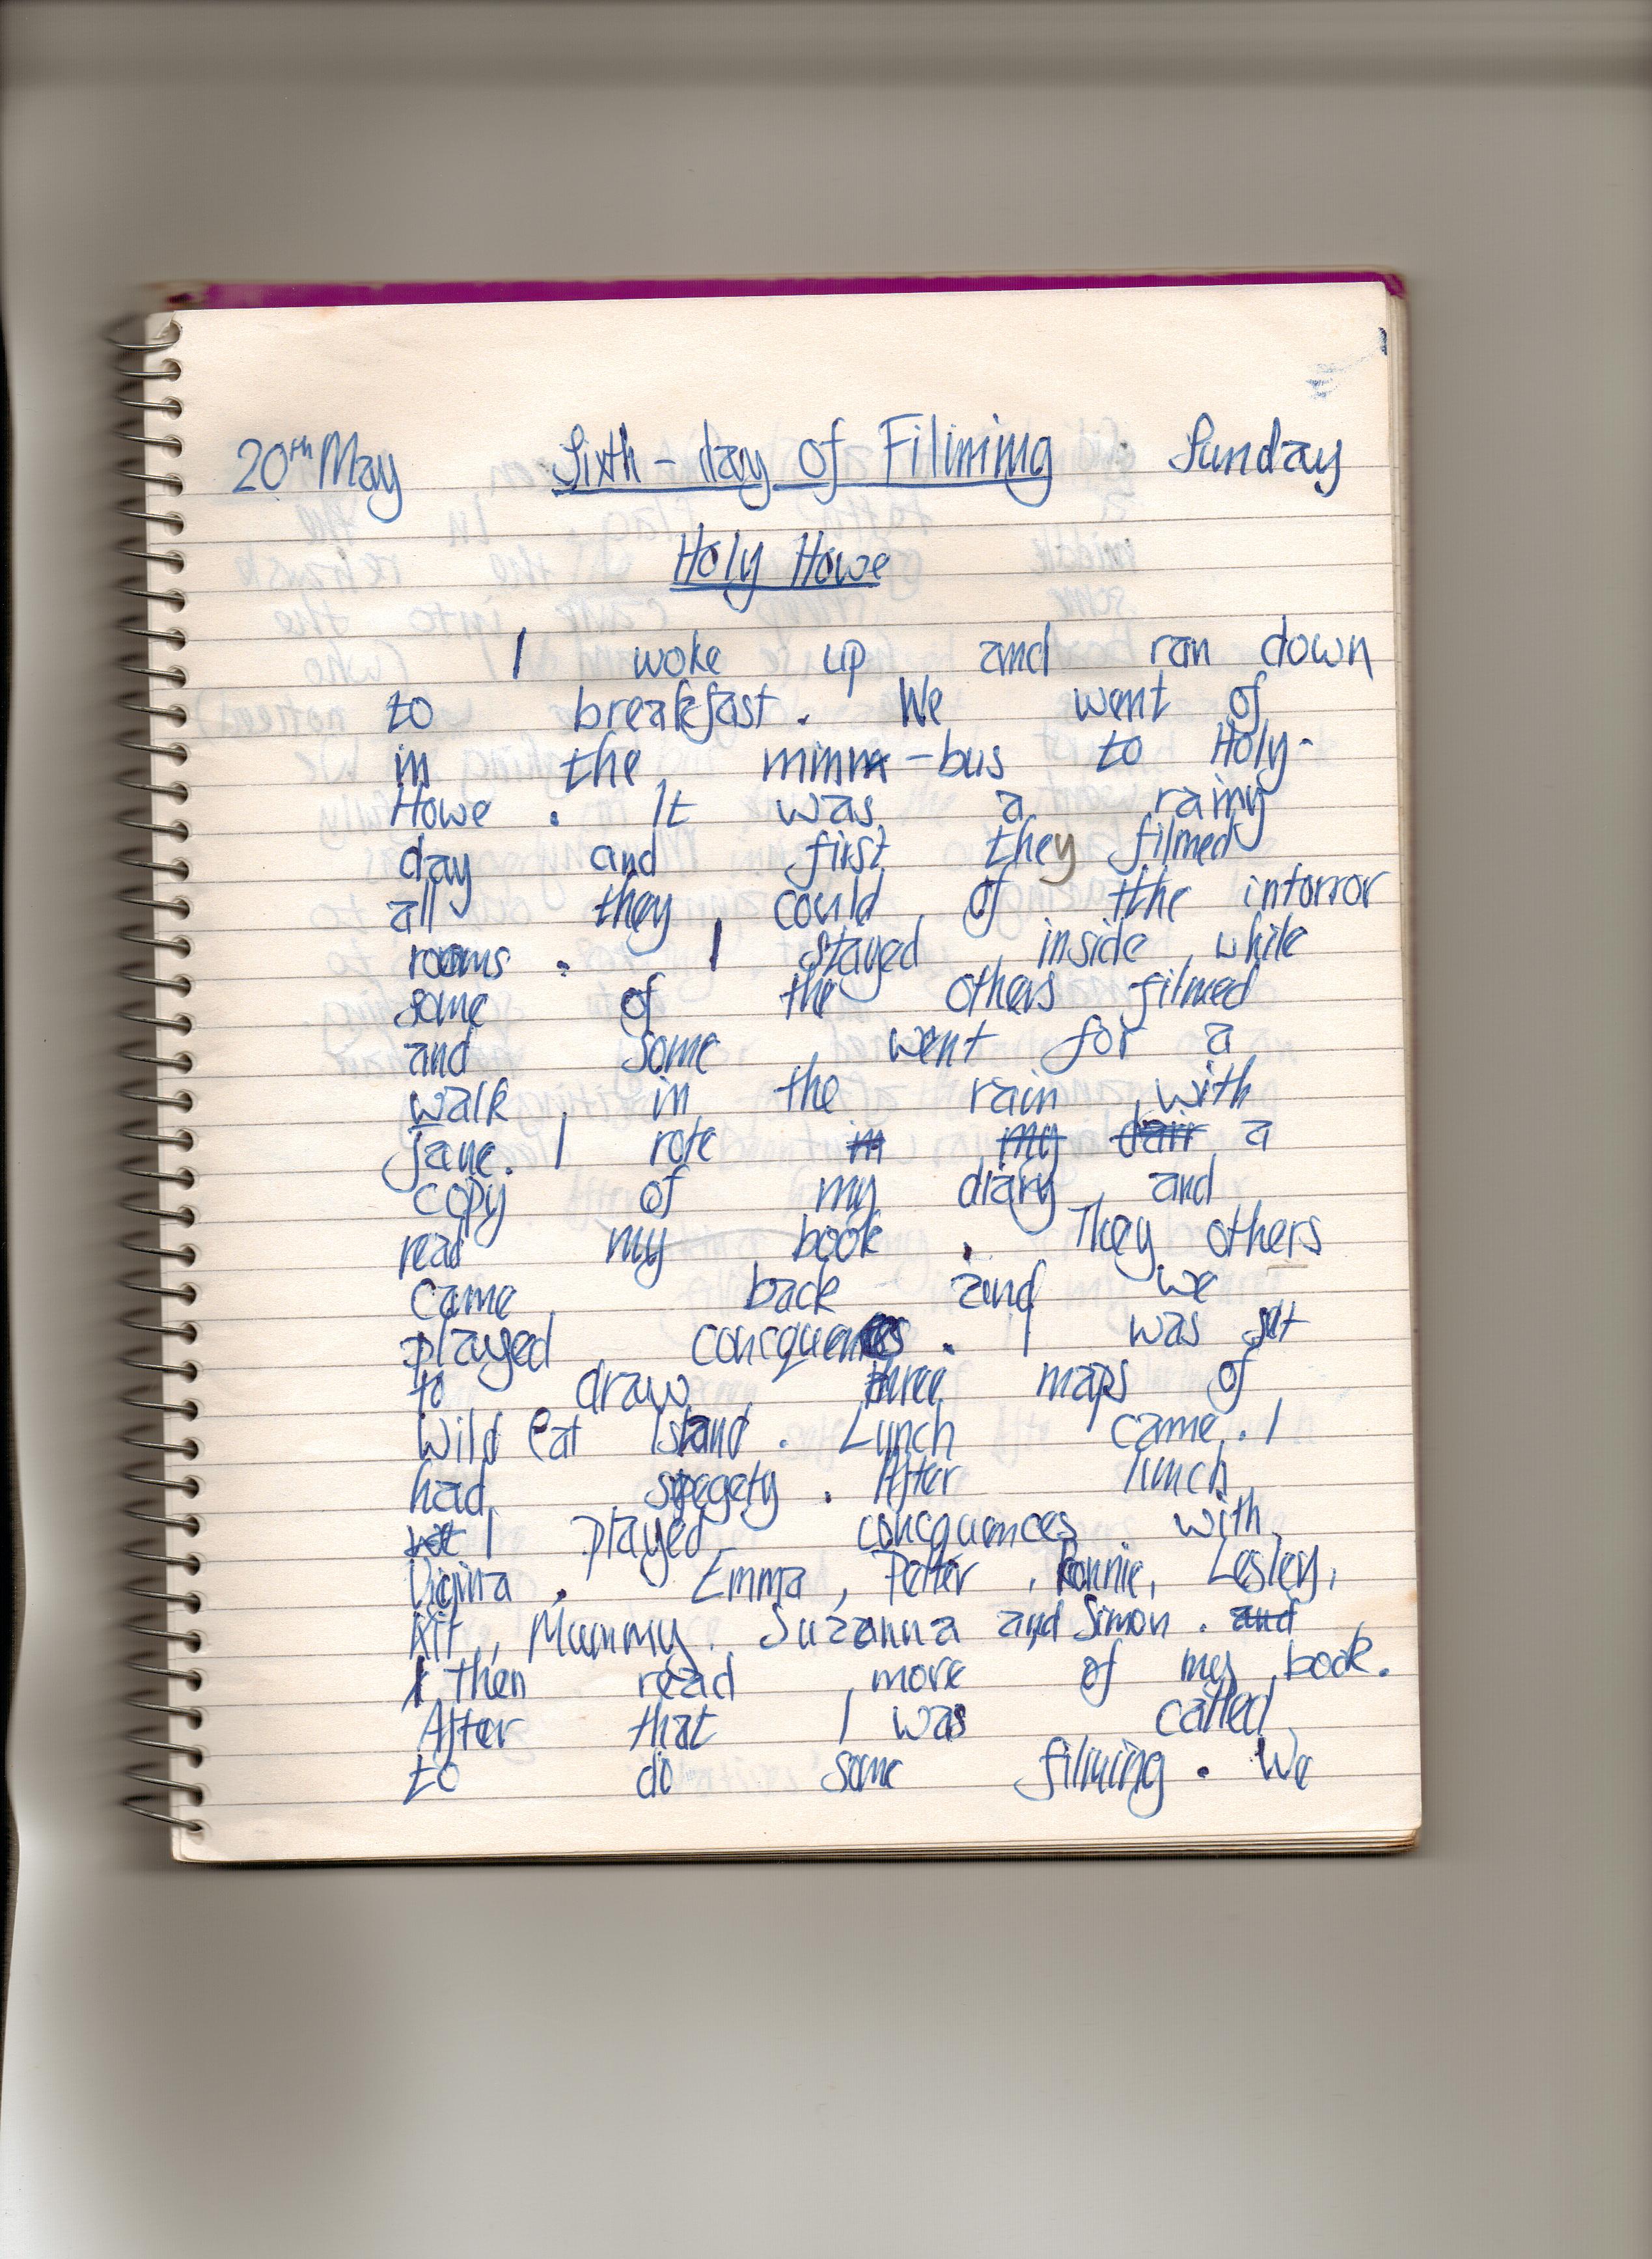 20th May Sixth-day of Filiming Sunday
Holy Howe
I woke up and ran down
to breakfast. We went of
in the minm-bus to Holy-
Howe. It was a rainy
day and first they filmed
all they could of tthe intorror
rooms. I stayed inside while
some of the others filmed
and some went for a
walk in the rain with
Jane. I rote in my dair a
copy of my diary and
read my book. They others
came back and we
played concquences. I was set
to draw three maps of
Wild Cat Island. Lunch came. I
had spegety. After lunch
I played concquences with
Virgina. Emma, Petter, Ronnie, Lesley,
Kit, Mummy. Suzanna and Simon. and
I then read more of my book.
After that I was called
to do some filming. We